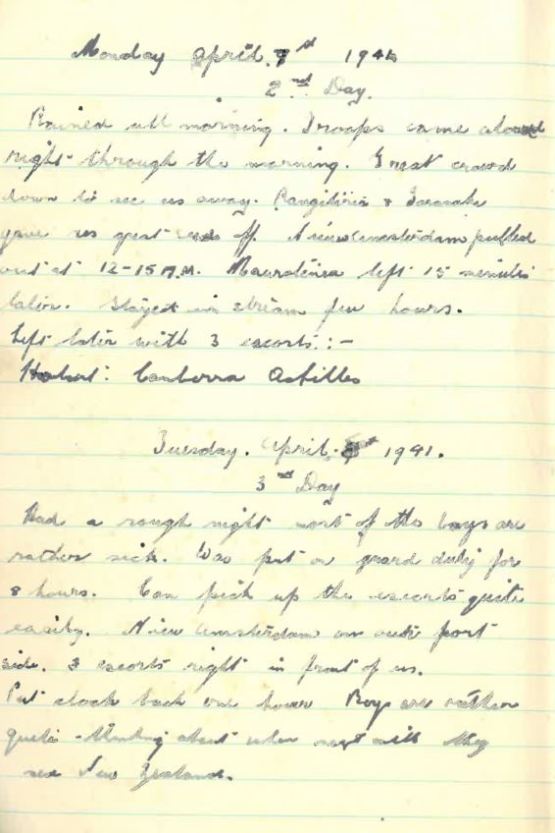 Monday April 7st 1941
2nd Day.
Rained all morning. Troops came aboard
right through the morning. Great crowd
down to see us away. Rangitira &
gave us great send off. Niew Amsterdam pulled
out at 12-15 P.M. Mauretania left 15 minutes
later. Stayed in stream few hours.
Left later with 3 escorts:-
Hobart: Canberra Achilles
Tuesday. April 8st 1941.
3nd Day
Had a rough night most of the boys are
rather sick. Was put on guard duty for
8 hours. Can pick up the escorts quite
easily. Niew Amsterdam on our port
side. 3 escorts right in front of us.
Put clock back one hour Boys are rather
quite - thinking about when next will they
see New Zealand.